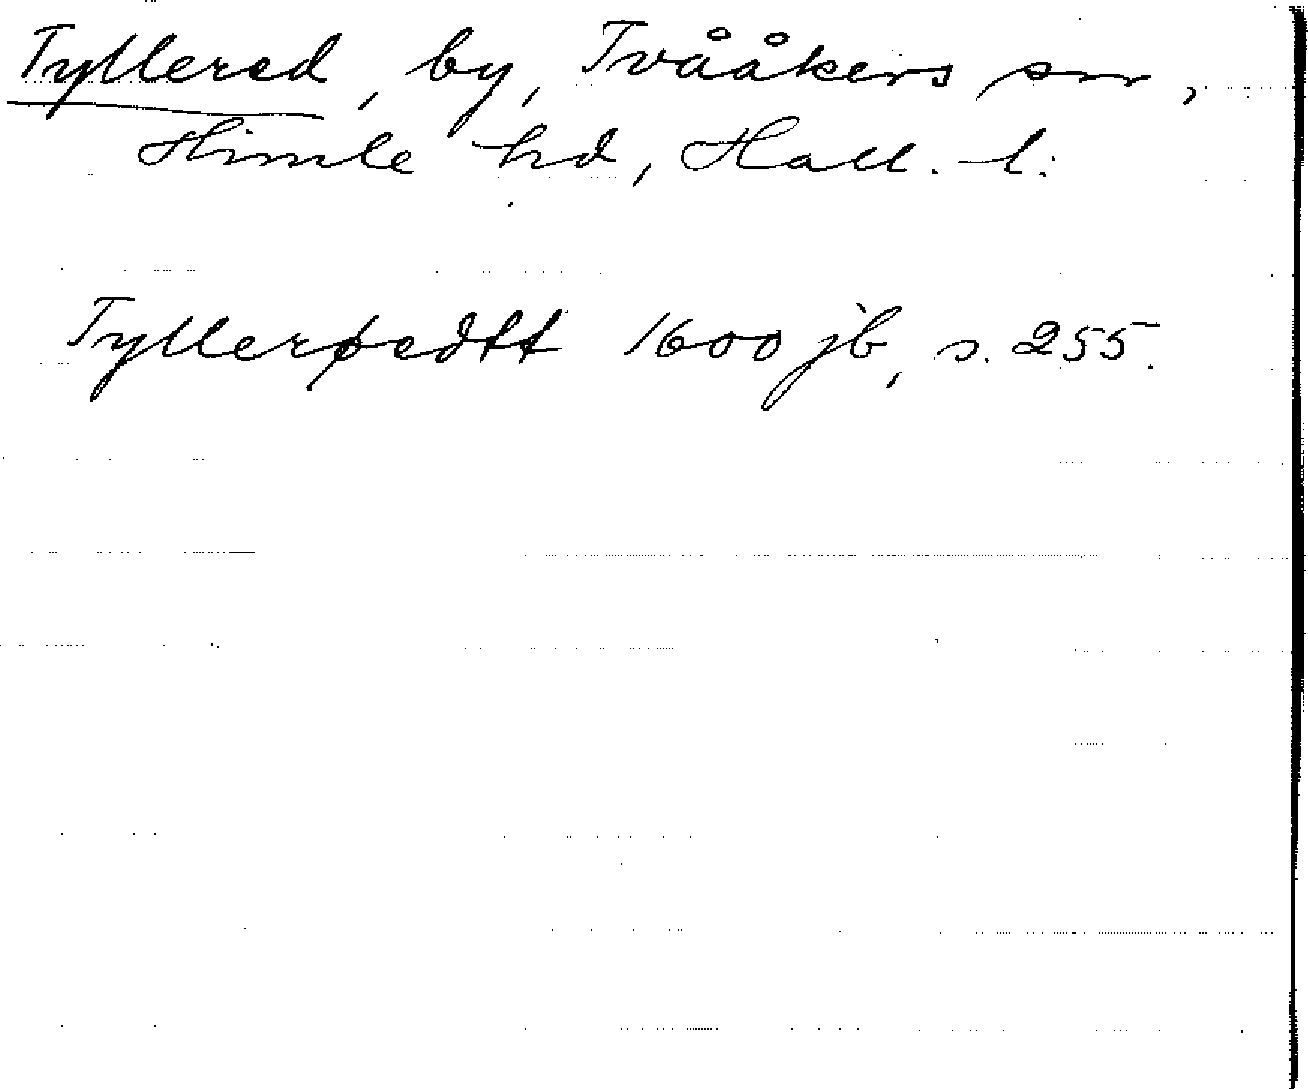 Tyllered, by, Tvååkers sn,
Himle hd, Hall. l.
Tyllerøedtt 1600 jb, s. 255.